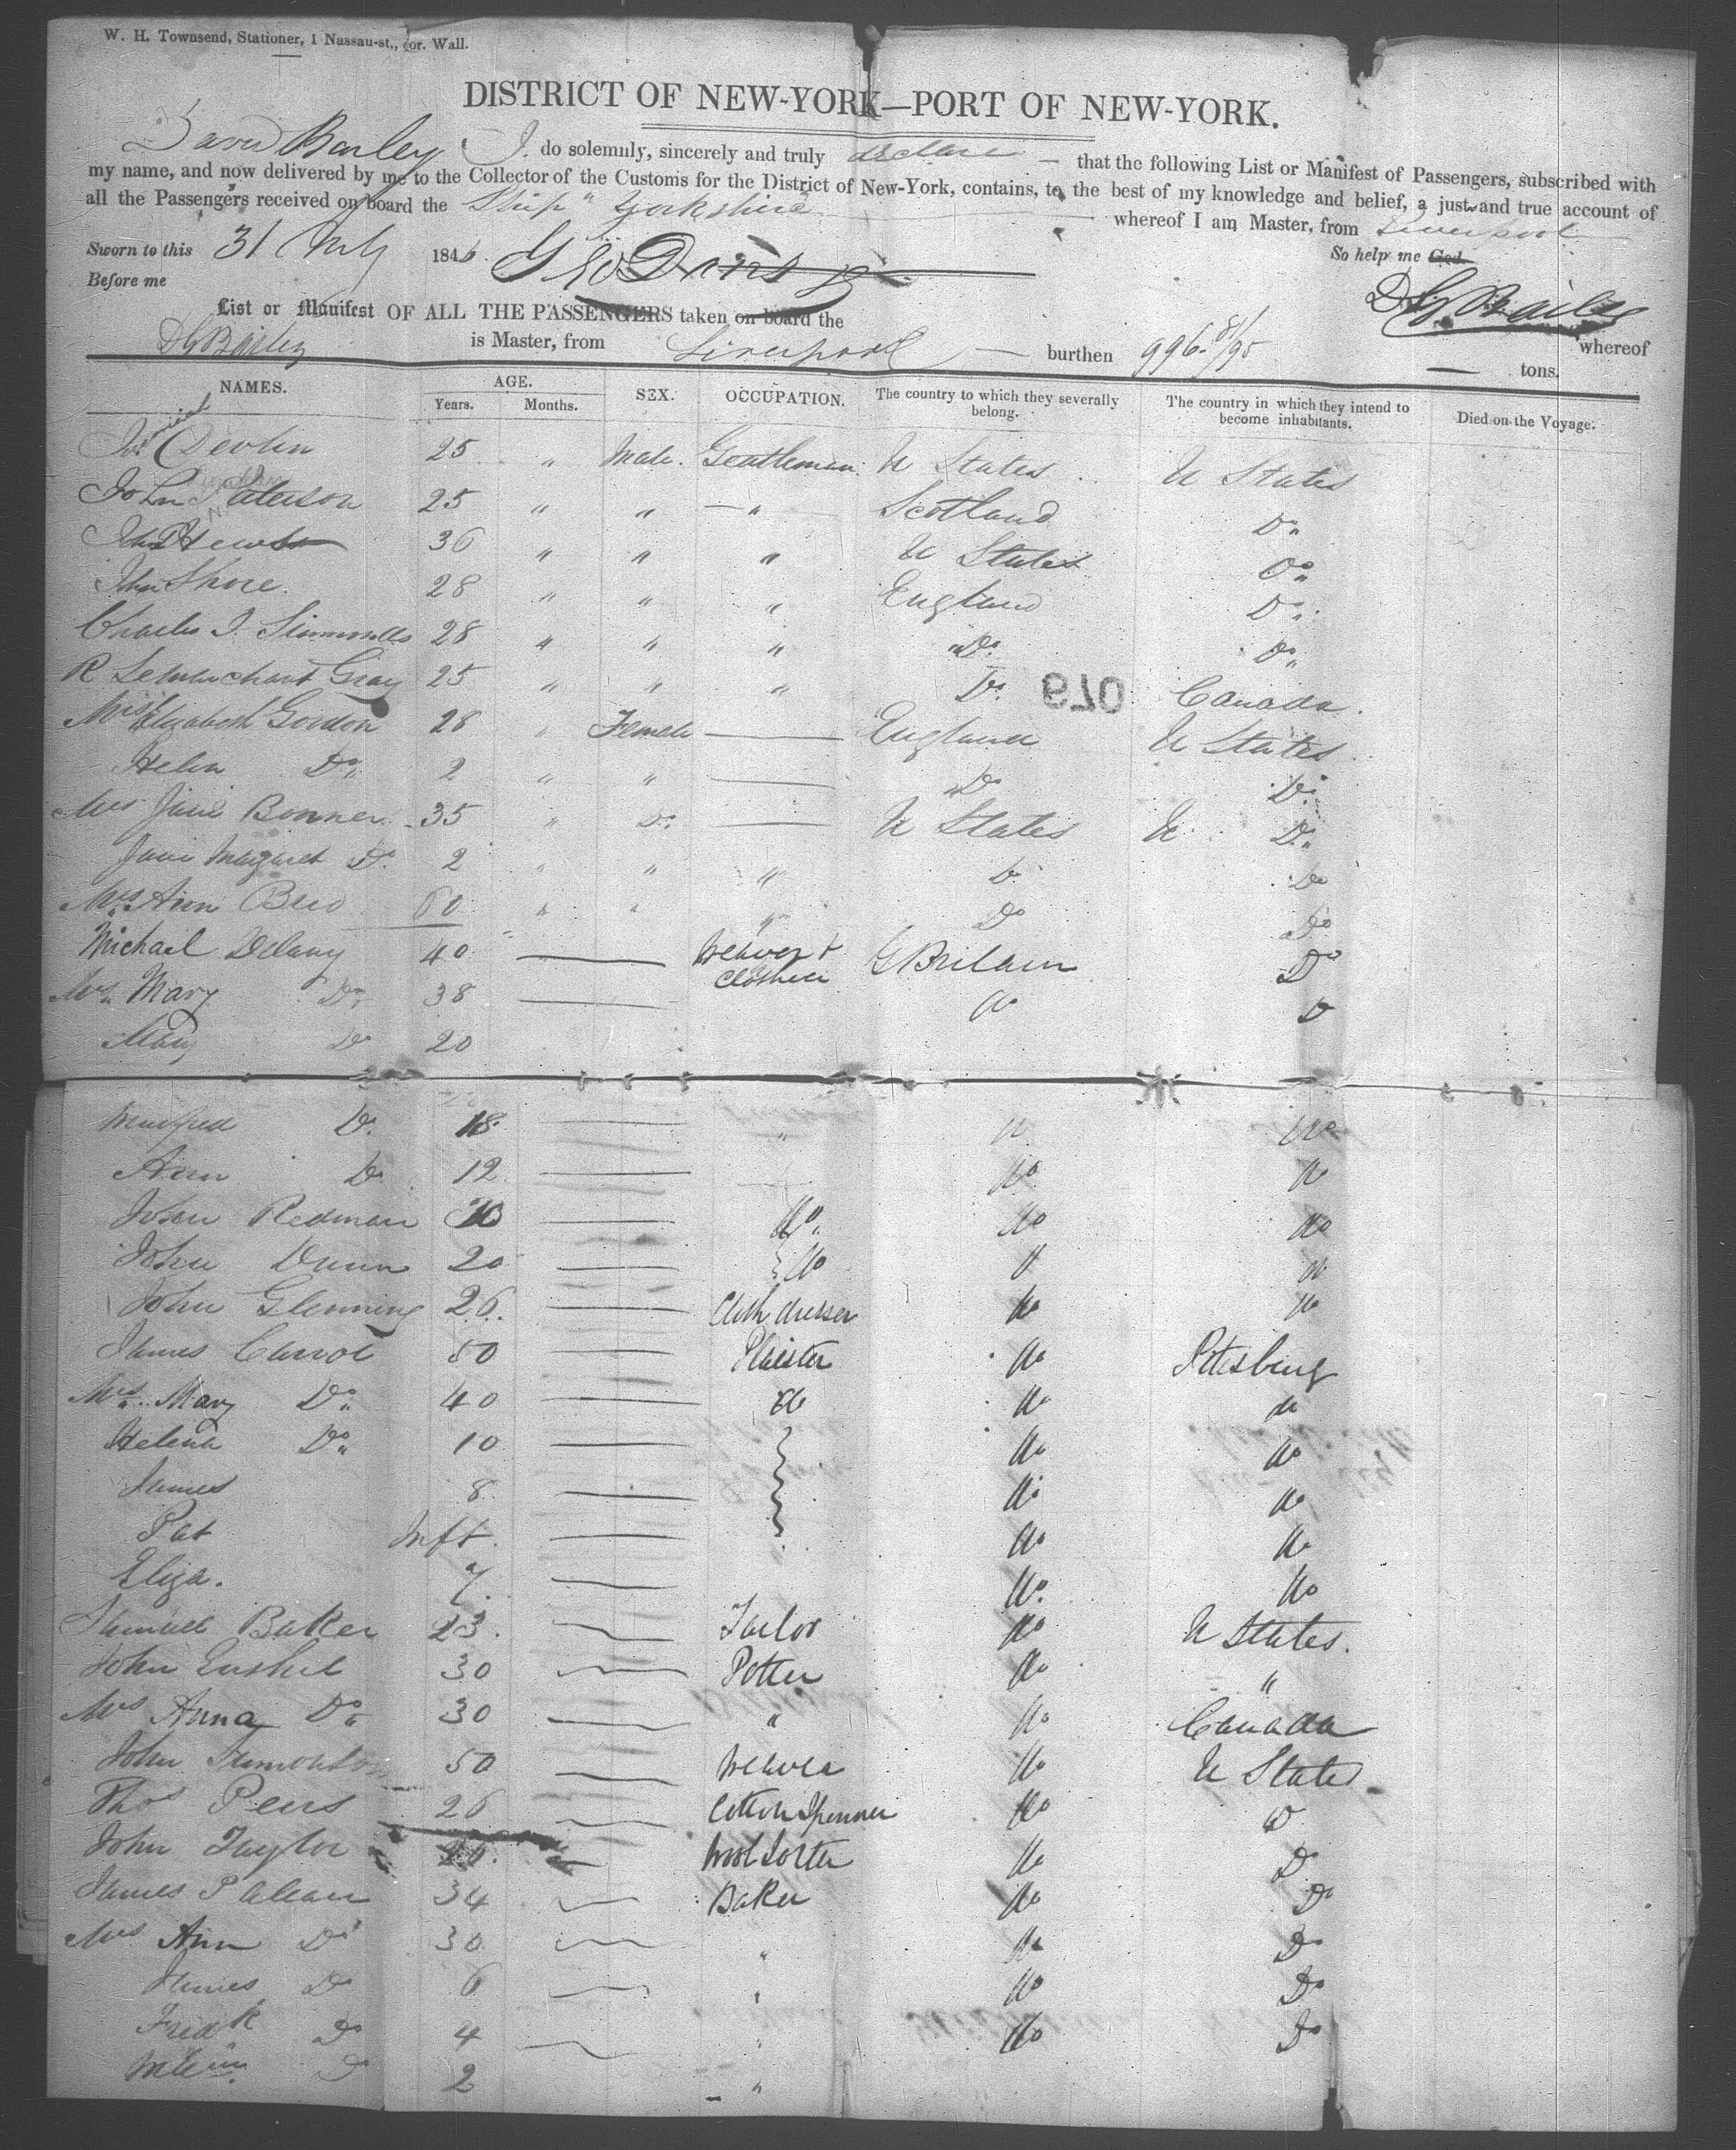 W. H. Townsend, Stationer, 1 Nassau-st., cor. Wall.
DISTRICT OF NEW-YORK—PORT OF NEW-YORK.
David Bailey I. do solemnly, sincerely and truly declare — that the following List or Manifest of Passengers, subscribed with
my name, and now delivered by me to the Collector of the Customs for the District of New-York, contains, to the best of my knowledge and belief, a just and true account of
all the Passengers received on board the Ship "Yorkshire whereof I am Master, from Liverpool
Sworn to this 31 July 1846. So help me God.
Before me D G Bailey
List or Manifest OF ALL THE PASSENGERS taken on board the whereof
D G Bailey is Master, from Liverpool — burthen 996. 81/95 — tons.
NAMES. AGE. Years. Months. SEX. OCCUPATION. The country to which they severally belong. The country in which they intend to become inhabitants. Died on the Voyage.
Devlin 25 " Male. Gentleman. U States U States
John Paterson 25 " " " Scotland Do
John 36 " " " U States Do
John Shore. 28 " " " England Do
Charles J. 28 " " " Do Do
R Lemarchant Gray 25 " " " Do Canada.
079
Elizabeth Gordon 28 " Female — England U States
Helen Do 2 " " — Do Do
Mrs Jane Bonner 35 " Do — U States U Do
Jane Margaret Do 2 " " " Do Do
Mrs Ann 60 " " " Do Do
Michael Delany 40 — Weaver & Clothier G Britain Do
Mrs Mary Do 38 — Do Do
Mary Do 20
Do 18 — " Do
Ann Do 12 — Do Do
John Redman — Do Do Do
John Dunn 20 — Do Do
John Glenning 26 — Cloth dresser Do Do
James Carrol 50 — Plaister Do Pitesburg
Mrs Mary Do 40 — do Do do
Helena Do 10 — Do Do
James 8 — Do Do
Pat Inft. — Do Do
Eliza. 7 — Do Do
Samuel Baker 23. — Tailor Do U States.
John 30 — Potter Do "
Mrs Anna Do 30 — " Do Canada
John 50 — Weaver Do U States
Thos 26 — Cotton Spinner Do Do
John Taylor — Wool Sorter Do Do
James 34 — Baker Do Do
Mrs Ann Do 30 — " Do Do
James Do 6 — " Do Do
Fredk Do 4 — " Do Do
Do 2 "